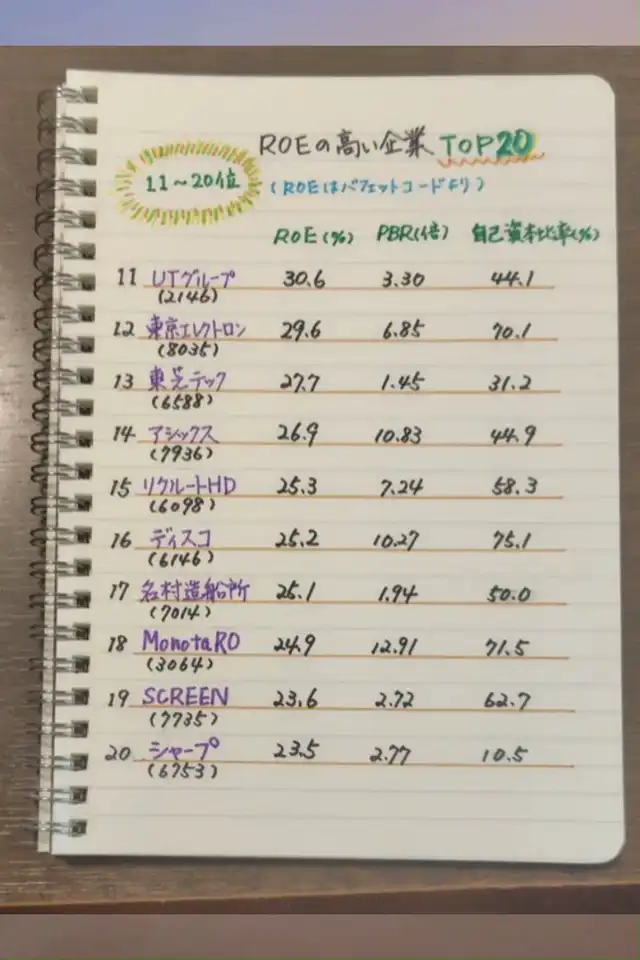 ROEの高い企業 TOP20
11～20位
(ROEはバフェットコードより)
ROE(%) PBR(倍) 自己資本比率(%)
11 UTグループ 30.6 3.30 44.1
(2146)
12 東京エレクトロン 29.6 6.85 70.1
(8035)
13 東芝テック 27.7 1.45 31.2
(6588)
14 アシックス 26.9 10.83 44.9
(7936)
15 リクルートHD 25.3 7.24 58.3
(6098)
16 ディスコ 25.2 10.27 75.1
(6146)
17 名村造船所 25.1 1.94 50.0
(7014)
18 MonotaRO 24.9 12.91 71.5
(3064)
19 SCREEN 23.6 2.72 62.7
(7735)
20 シャープ 23.5 2.77 10.5
(6753)